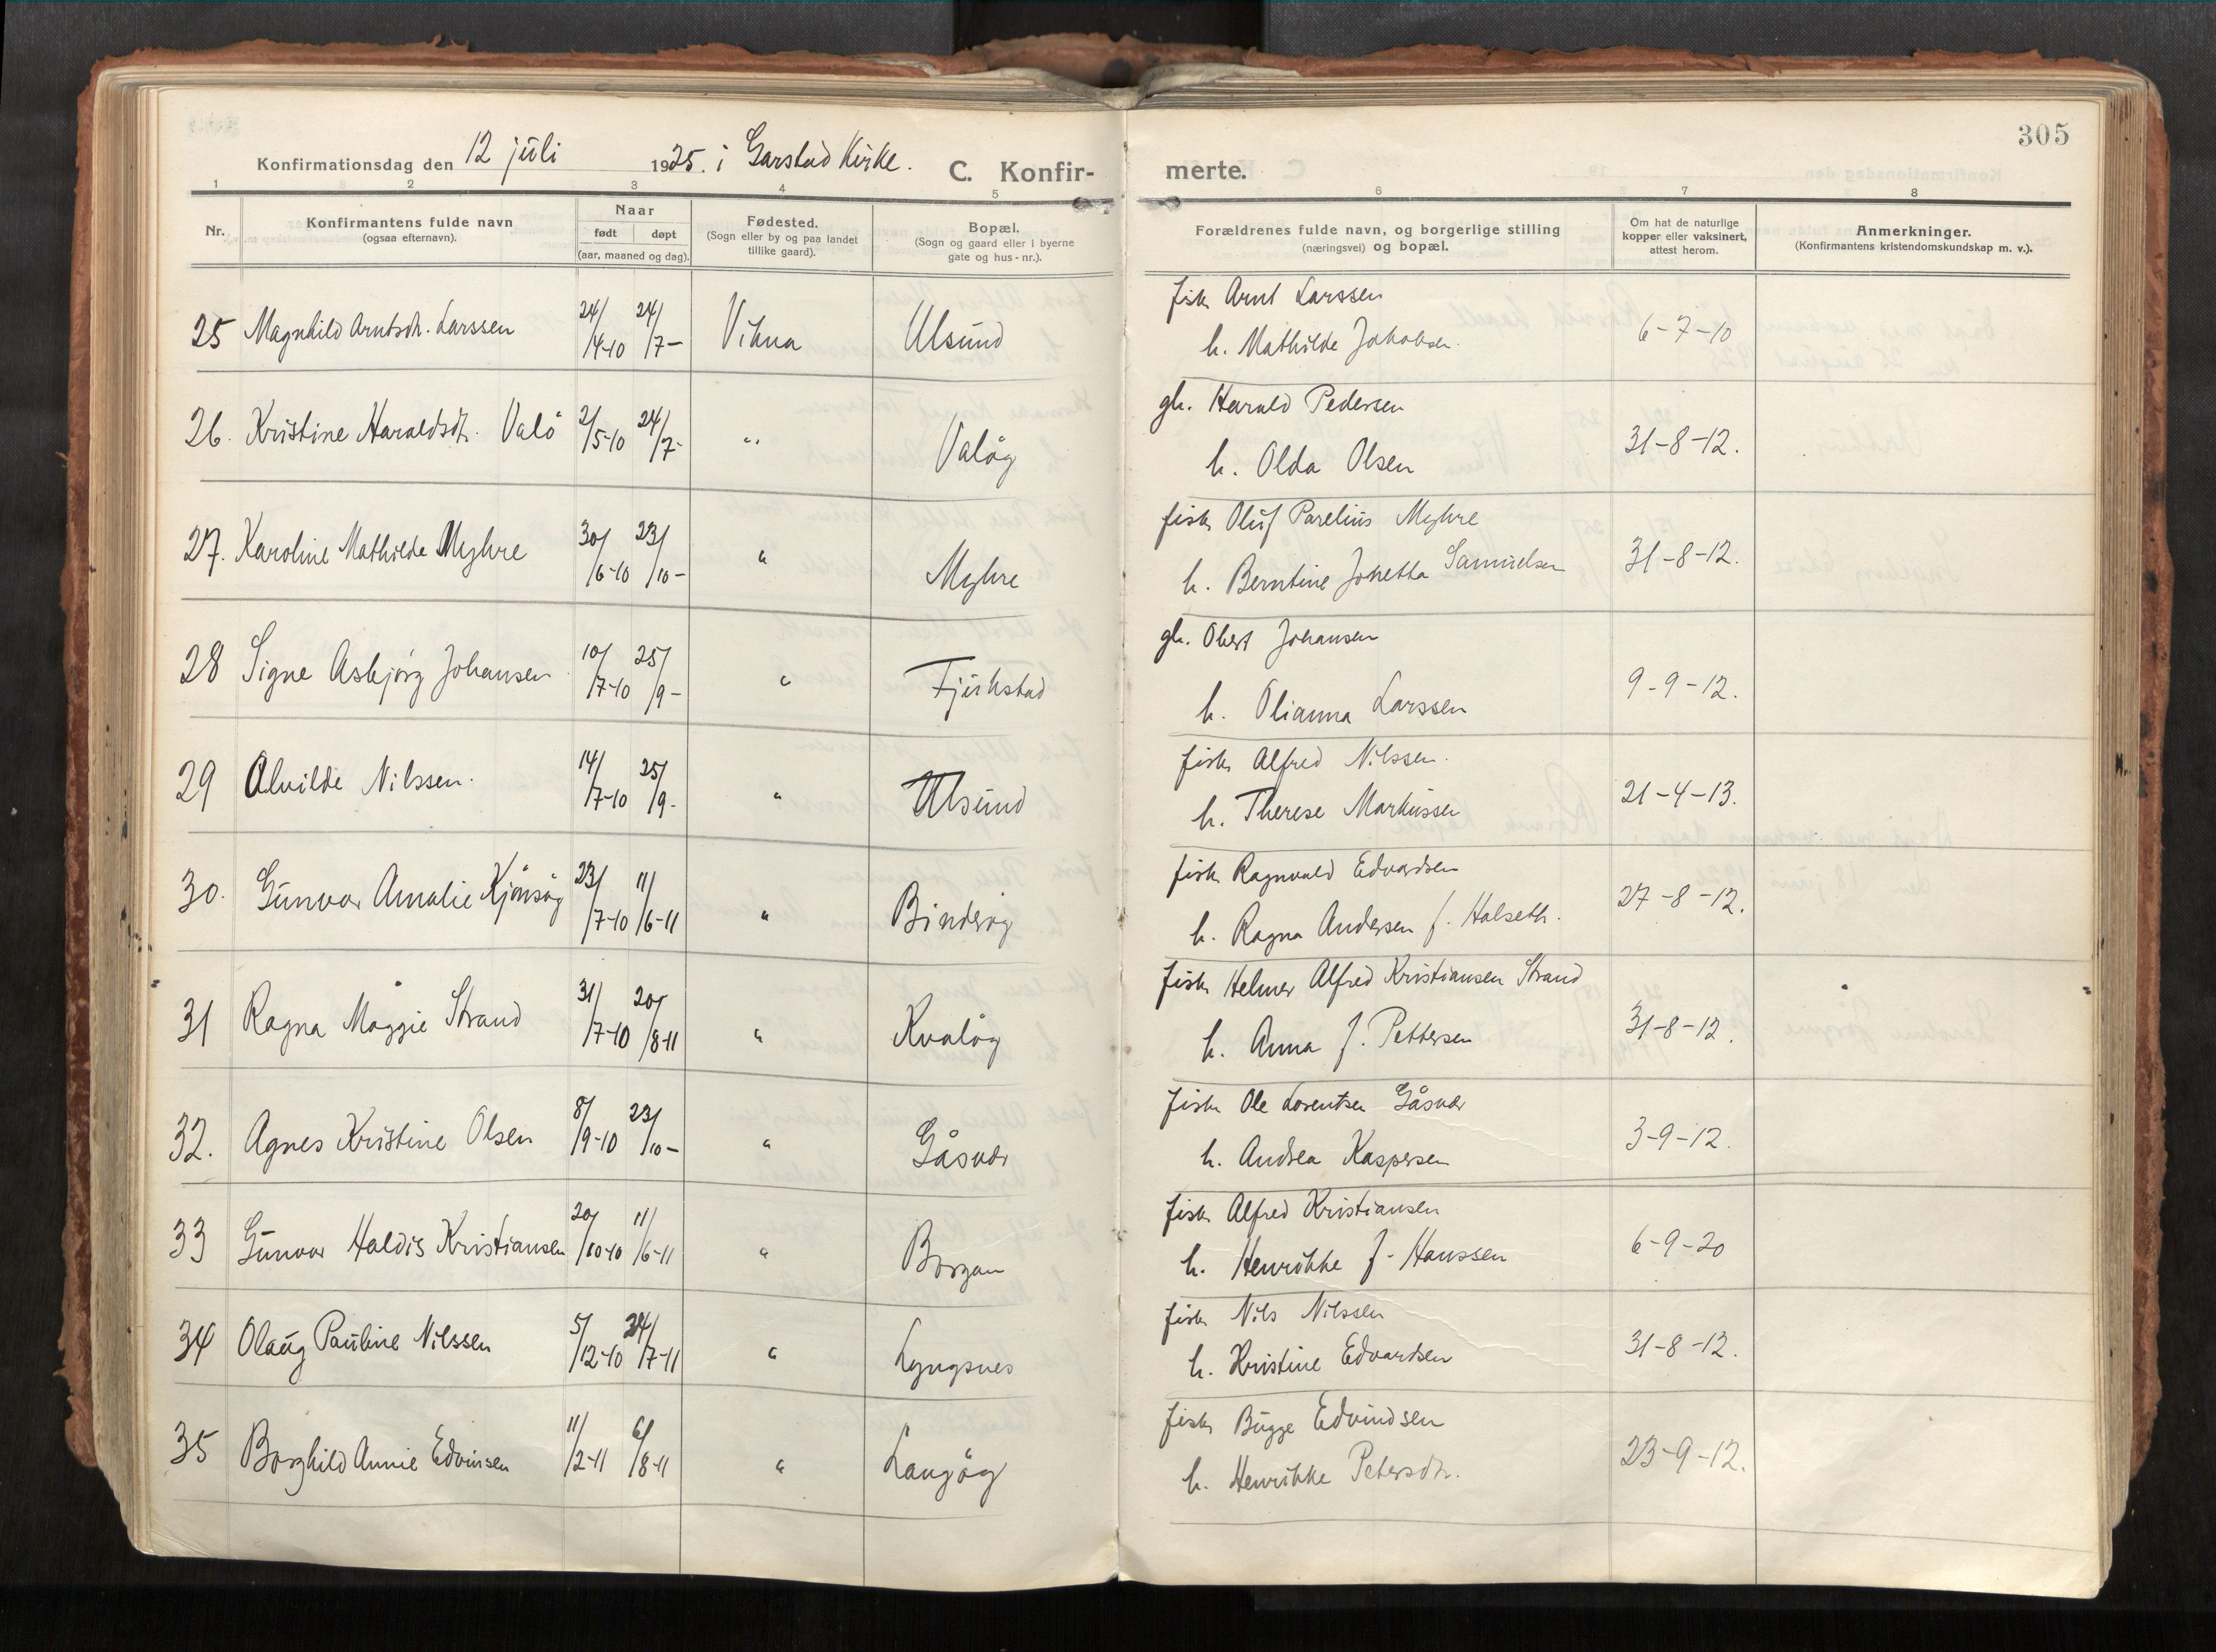 305
Konfirmationsdag den 12 juli 1925. i Garstad Kirke. C. Konfir- merte.
1 2 3 4 5 6 7 8
Nr. Konfirmantens fulde navn (ogsaa efternavn). Naar født døpt (aar, maaned og dag). Fødested. (Sogn eller by og paa landet tillike gaard). Bopæl. (Sogn og gaard eller i byerne gate og hus-nr.). Forældrenes fulde navn, og borgerlige stilling (næringsvei) og bopæl. Om hat de naturlige kopper eller vaksinert, attest herom. Anmerkninger. (Konfirmantens kristendomskundskap m. v.).
fisk Arnt Larssen
25 Magnhild Arntsdt. Larssen 24/4-10 24/7- Vikna Ulsund h. Mathilde Jakobsen. 6-7-10
gb. Harald Pedersen
26. Kristine Haraldsdt. Valö 2/5-10 24/7- " Valög h. Olda Olsen 31-8-12.
fisk Oluf Parelius Myhre
27. Karoline Mathilde Myhre 30/6-10 23/10- " Myhre h. Berntine Jonetta Samuelsen 31-8-12.
gb. Obert Johansen
28 Signe Asbjörg Johansen 10/7-10 25/9- " Fjukstad h. Olianna Larssen 9-9-12.
fisk Alfred Nilssen.
29 Alvilde Nilssen. 14/7-10 25/9- " Ulsund h. Therese Markussen 21-4-13.
fisk Ragnvald Edvardsen
30. Gunvor Amalie Kjönsög 23/7-10 11/6-11 " Binderög h. Ragna Andersen f. Halseth. 27-8-12.
fisk Helmer Alfred Kristiansen Strand
31 Ragna Maggie Strand 31/7-10 20/8-11 " Kvalög h. Anna f. Pettersen 31-8-12.
fisk Ole Lorentsen Gåsvær
32. Agnes Kristine Olsen 8/9-10 23/10- " Gåsvær h. Andrea Kaspersen 3-9-12.
fisk Alfred Kristiansen
33 Gunvor Haldis Kristiansen 20/10-10 11/6-11 " Borgan h. Henrikke f. Hanssen 6-9-20
fisk Nils Nilssen
34 Olaug Pauline Nilssen 5/12-10 /7-11 " Lyngsnes h. Kristine Edvardsen 31-8-12.
fisk Bugge Edvindsen
35 Borghild Annie Edvinsen 11/2-11 6/8-11 " Langög h. Henrikke Petersdt. 23-9-12.